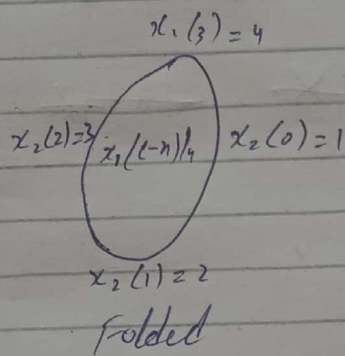 x₁(3) = 4
x₂(2)=3 x₂(0) = 1
x₂(1) = 2
Folded